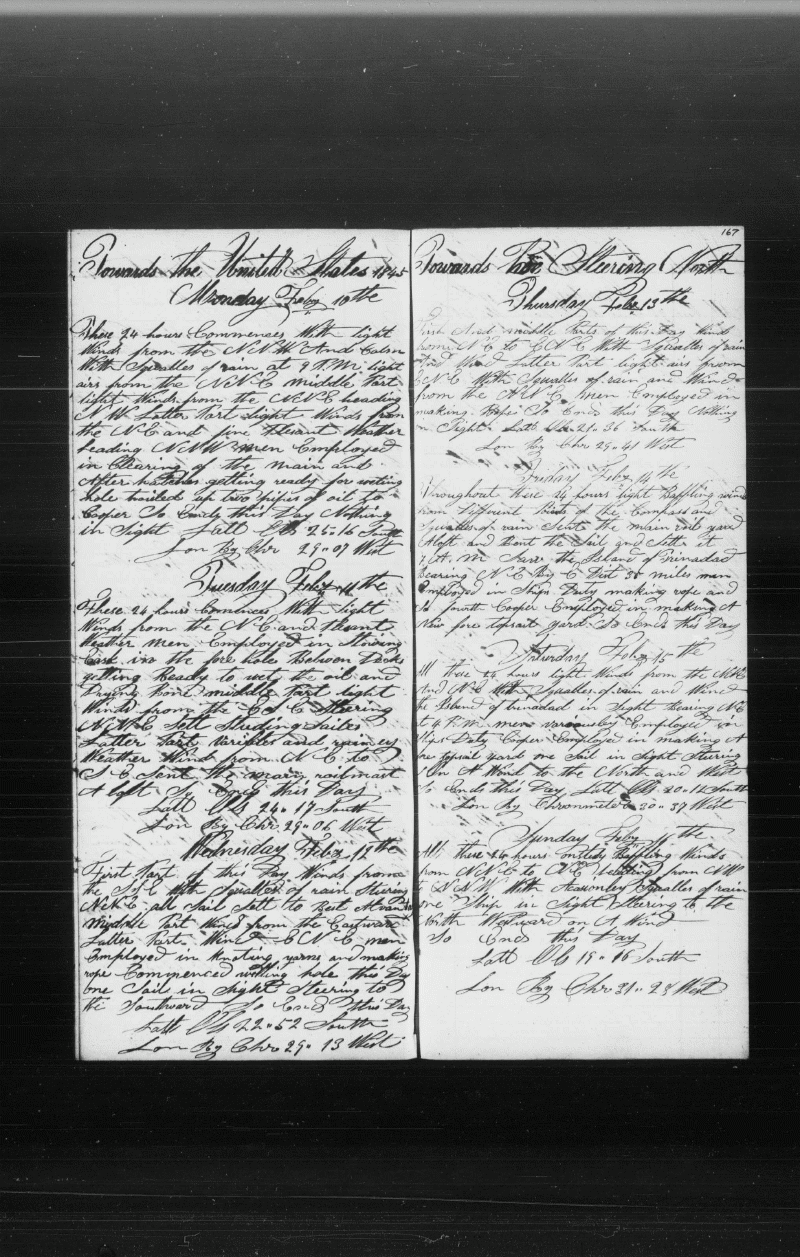 Towards the United States 1845
Monday Feby 10th
These 24 hours Commences With light
Winds from the N N W And Calm
With Squalles of rain at 9 P. M. light
airs from the N N E middle Part
light Winds from the N N E heading
N W Latter Part Light Winds from
the N E and fine Pleasant Weather
heading N N W men Employed
in Clearing of the main and
After hatches getting ready for weting
hole hoisted up two pipes of oil to
Cooper So Ends this Day Nothing
in Sight Latt Obs 25 " 16 South
Lon By Chr 29 " 07 West
Tuesday Feby 11th
These 24 hours Comences With light
Winds from the N E and Pleasant
Weather men Employed in Stowing
Cask in the fore hole Between Decks
getting Ready to wet the oil and
Drying bone middle Part light
Winds from the E S E Steering
N N E Sett Studing Sailes
Latter Part varibles and rainey
Weather Wind from N E to
S E Sent the main railmast
A loft So Ends this Day
Latt Obs 24 " 17 South
Lon By Chr 29 " 06 West
Wednesday Feby 12th
First Part of this Day Winds from
the S & E With Squalles of rain Steering
N E all Sail Sett to Best
Middle Part Wind from the Eastward
Latter Part Wind E N E men
Employed in Knoting yarns and making
rope Commenced wetting hole this Day
one Sail in Sight Steering to
the Southward So Ends this Day
Latt Obs 22 " 52 South
Lon By Chr 29 " 13 West
167
Towards Steering North
Thursday Feby 13th
First And middle Parts of this Day Winds
from N E to E N E With Squalles of rain
And Wind Latter Part light airs from
E N E With Squalles of rain and Wind
from the N N E men Employed in
making Rope So Ends this Day Nothing
in Sight Latt Obs 21 " 36 South
Lon By Chr 29 " 41 West
Friday Feby 14th
Throughout these 24 hours light Baffling winds
from Different Points of the Compass and
Squalles of rain Sent the main yard
Aloft and Bent the Sail and Sett it
A. M Saw the Island of Trinadad
Bearing N E By E Dist 35 miles men
Employed in Ships Duty making rope and
so fourth Cooper Employed in making A
New fore topsail yard So Ends this Day
Saturday Feby 15th
All these 24 hours light Winds from the N N E
And N E With Squalles of rain and Wind
the Island of trinadad in Sight Bearing N E
at 4 P. M. men variously Employed on
Ships Duty Cooper Employed in making A
fore topsail yard one Sail in Sight Steering
On A Wind to the North and West
So Ends this Day Latt Obs 20 " 14 South
Lon By Chronmeter 30 " 37 West
Sunday Feby 16th
All these 24 hours Baffling Winds
from N N E to N E heading from N W
to With Seasonley Squalles of rain
one Ship in Sight Steering to the
North Westward on A Wind
So Ends this Day
Latt Obs 19 " 16 South
Lon By Chr 31 " 28 West